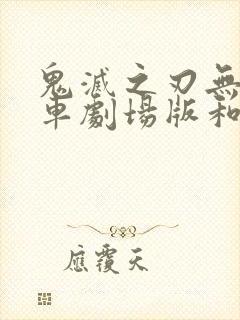 鬼滅之刃無
車劇場版和
應覆天